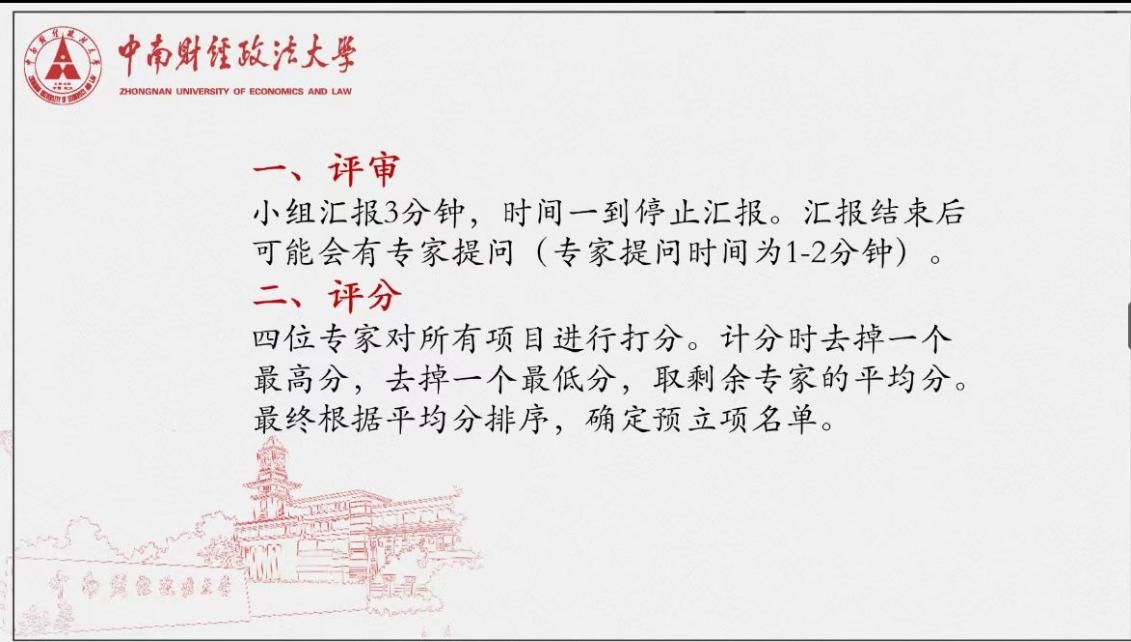 中南财经政法大学
ZHONGNAN UNIVERSITY OF ECONOMICS AND LAW
一、评审
小组汇报3分钟，时间一到停止汇报。汇报结束后
可能会有专家提问（专家提问时间为1-2分钟）。
二、评分
四位专家对所有项目进行打分。计分时去掉一个
最高分，去掉一个最低分，取剩余专家的平均分。
最终根据平均分排序，确定预立项名单。
中南财经政法大学